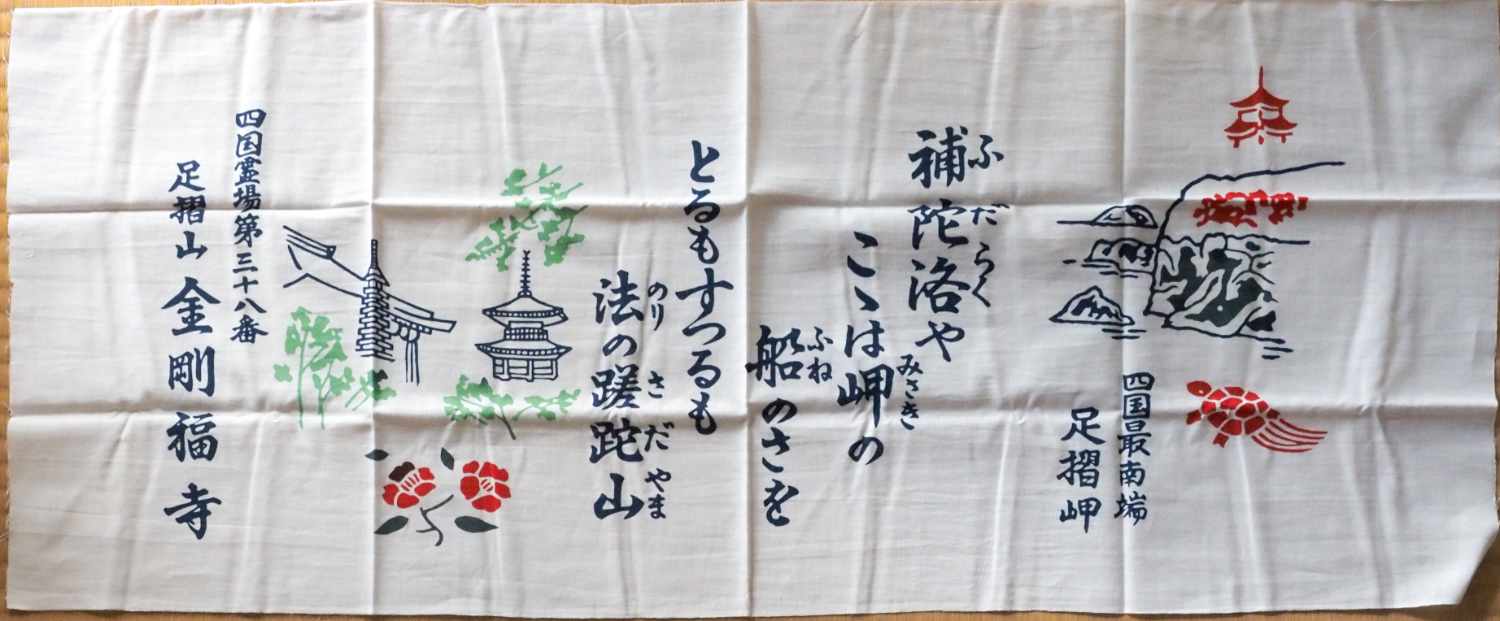 四国最南端
足摺岬
補陀洛や
ふだらく
こゝは岬の
みさき
船のさを
ふね
とるもすつるも
法の蹉跎山
のり さだやま
四国霊場第三十八番
足摺山 金剛福寺